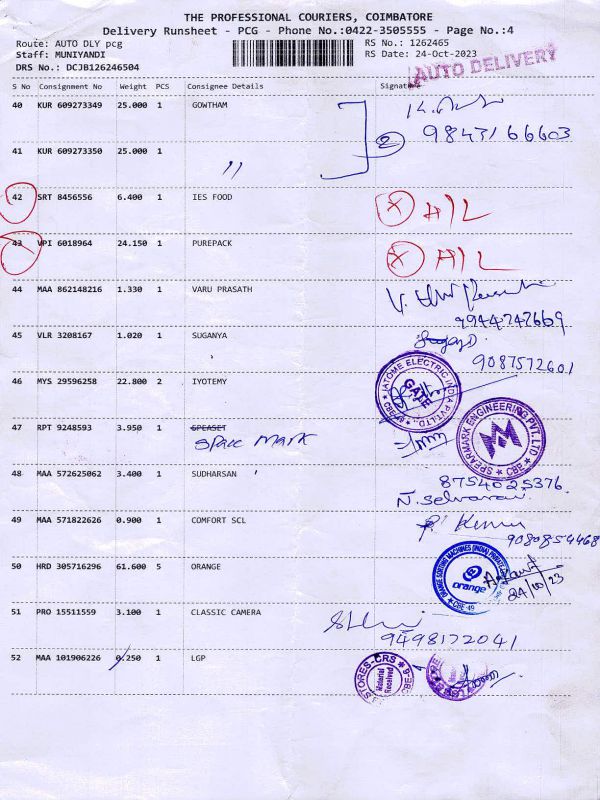 THE PROFESSIONAL COURIERS, COIMBATORE
Delivery Runsheet - PCG - Phone No.:0422-3505555 - Page No.:4
Route: AUTO DLY pcg RS No.: 1262465
Staff: MUNIYANDI RS Date: 24-Oct-2023
DRS No.: DCJB126246504 AUTO DELIVERY
S No Consignment No Weight PCS Consignee Details Signature
40 KUR 609273349 25.000 1 GOWTHAM
9843166603
2
41 KUR 609273350 25.000 1 "
42 SRT 8456556 6.400 1 IES FOOD X A/L
43 VPI 6018964 24.150 1 PUREPACK X A/L
44 MAA 862148216 1.330 1 VARU PRASATH
9944242669
45 VLR 3208167 1.020 1 SUGANYA
9087572601
46 MYS 29596258 22.800 2 IYOTEMY
JATOME ELECTRIC INDIA PVT.LTD.
GATE
47 RPT 9248593 3.950 1 SPEASET
Space Mark
SPEARMARK ENGINEERING PVT. LTD
CBE
48 MAA 572625062 3.400 1 SUDHARSAN 8754025376
N. Selvaraj
49 MAA 571822626 0.900 1 COMFORT SCL
9080854468
50 HRD 305716296 61.600 5 ORANGE
ORANGE SORTING MACHINES (INDIA) PRIVATE
orange
CBE-49
24/10/23
51 PRO 15511559 3.100 1 CLASSIC CAMERA
9498172041
52 MAA 101906226 0.250 1 LGP
STORES-CRS
Material Received